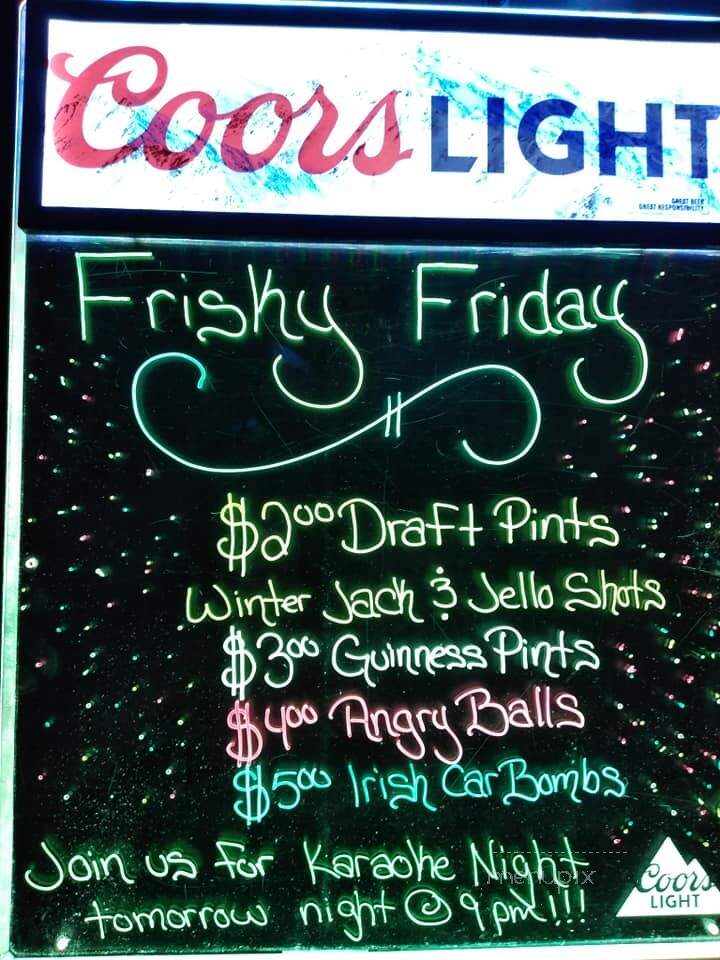 Coors LIGHT
GREAT BEER
GREAT RESPONSIBILITY
Frisky Friday
$2.00 Draft Pints
Winter Jack & Jello Shots
$3.00 Guinness Pints
$4.00 Angry Balls
$5.00 Irish Car Bombs
Join us for Karaoke Night
tomorrow night @ 9 pm!!!
menupix
Coors
LIGHT